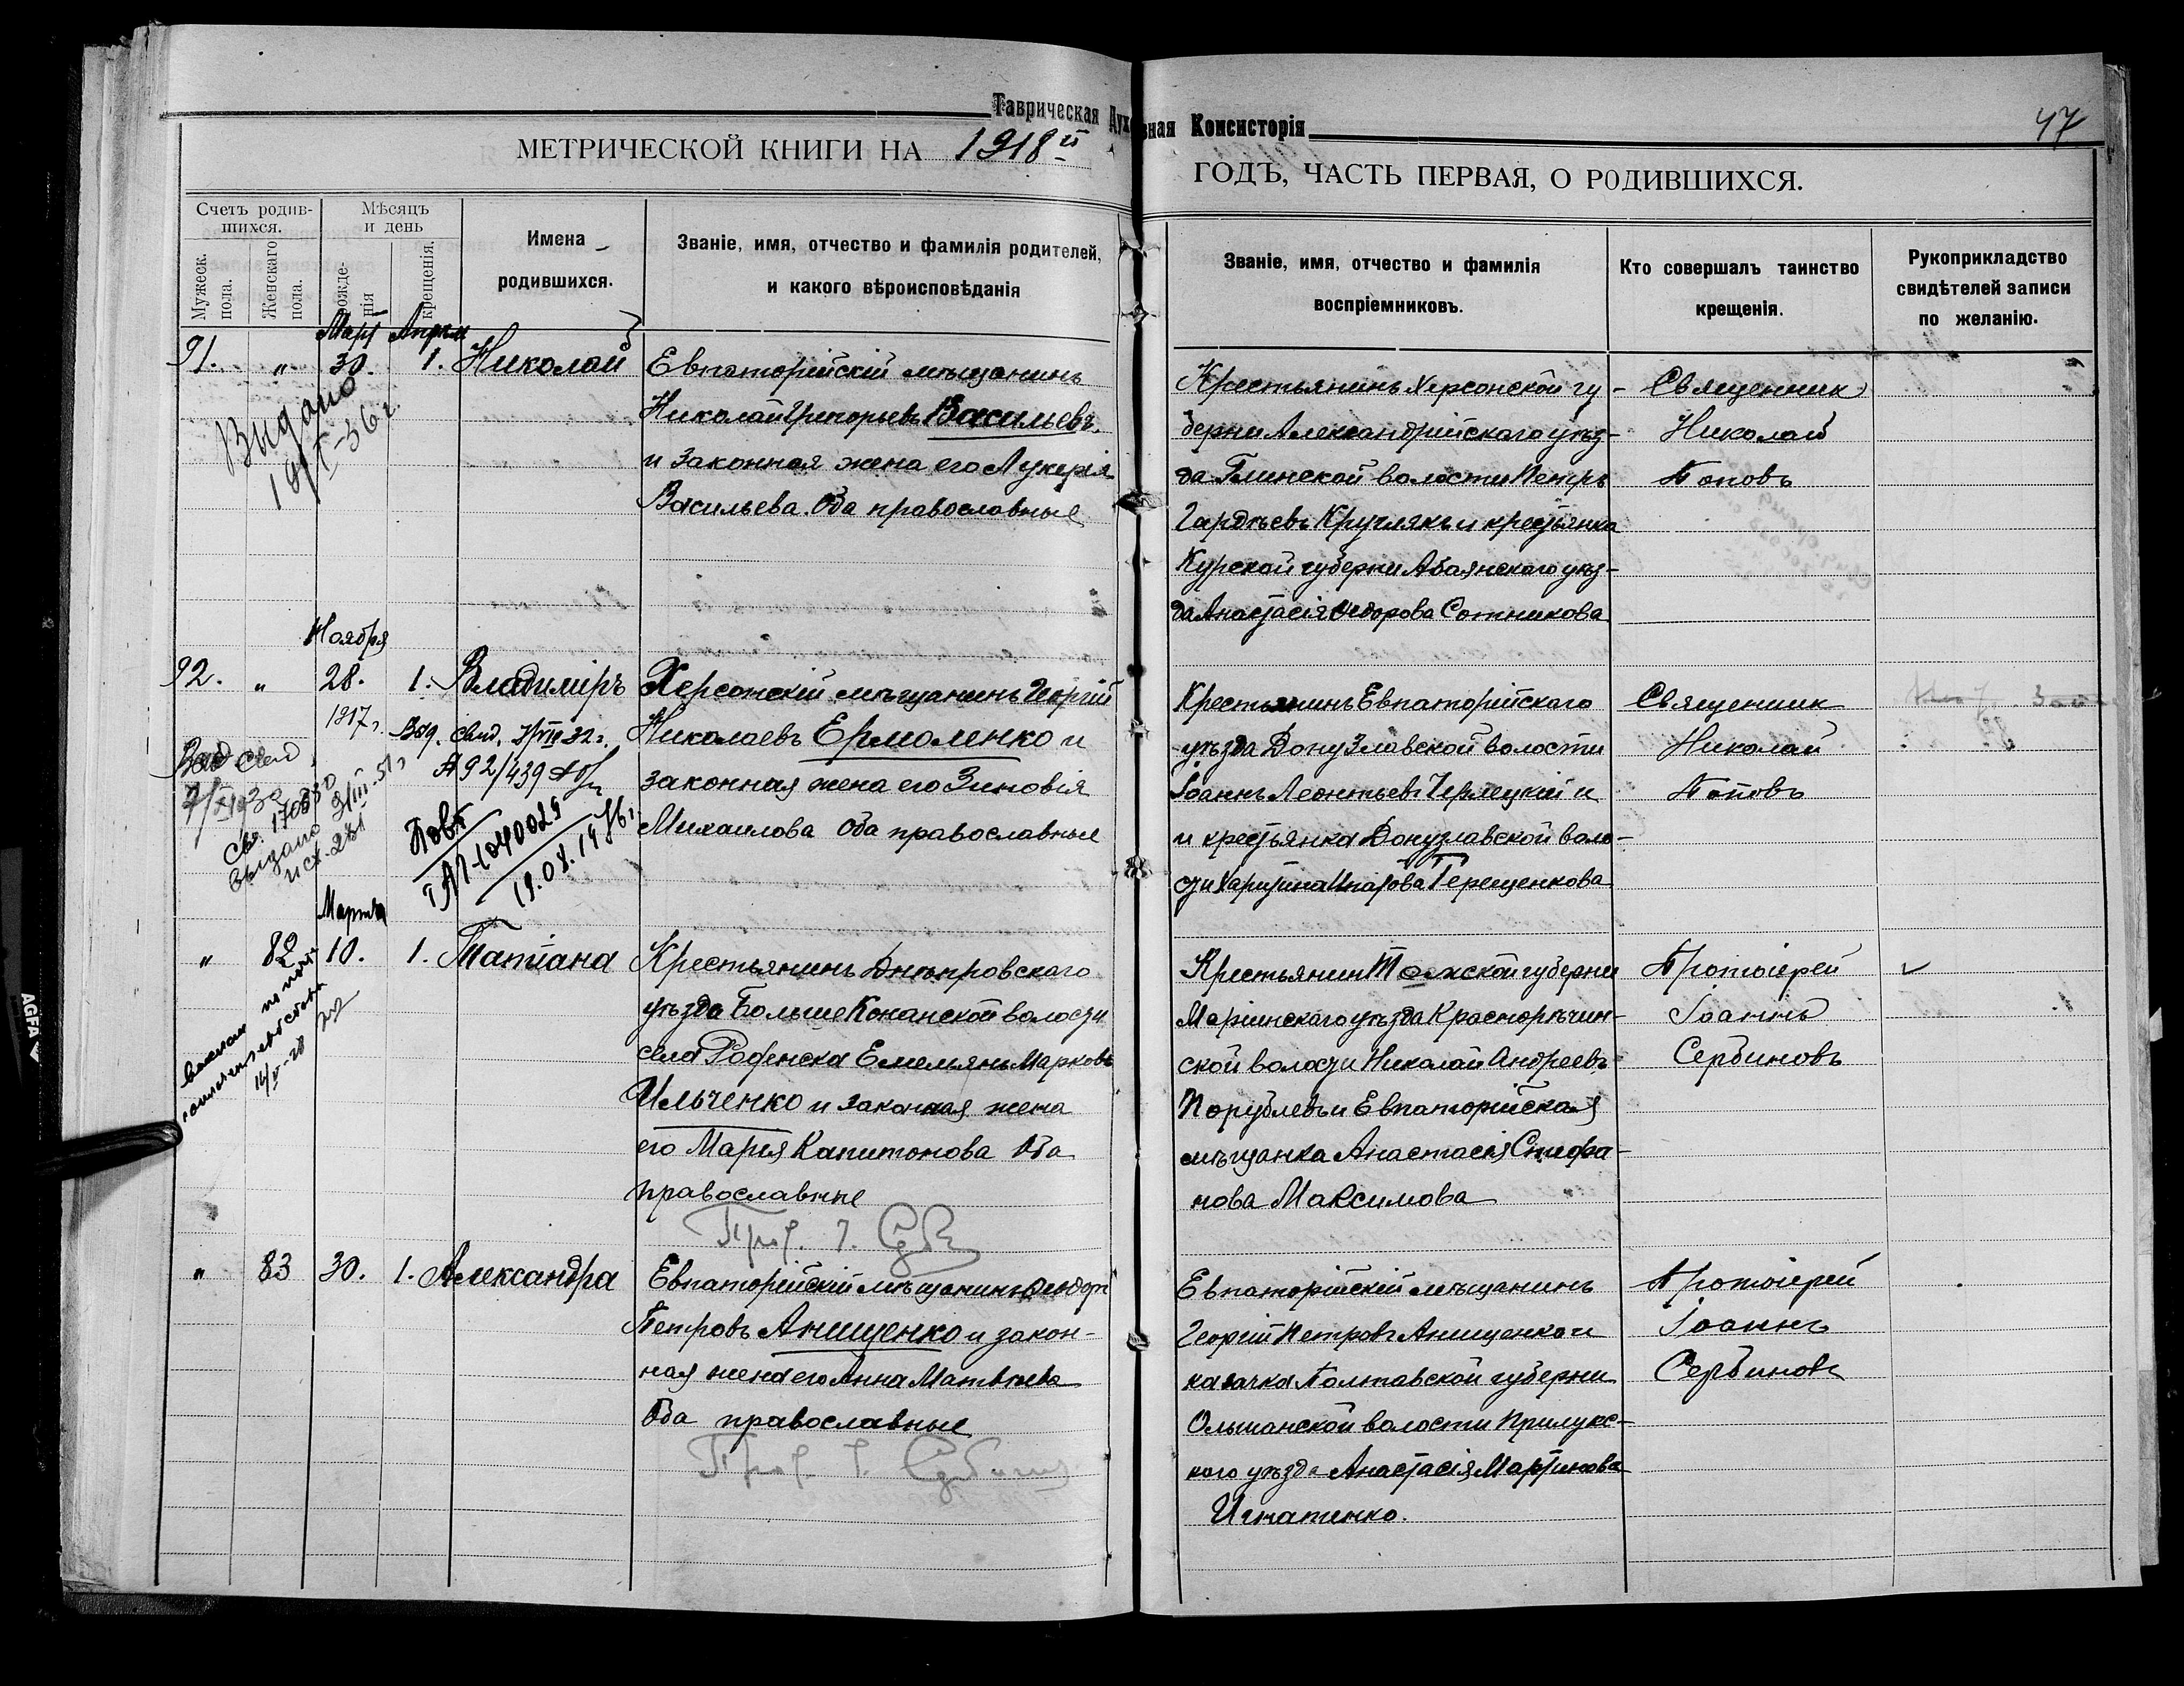 Таврическая Духовная Консисторія
47
МЕТРИЧЕСКОЙ КНИГИ НА 1918й
ГОДЪ, ЧАСТЬ ПЕРВАЯ, О РОДИВШИХСЯ.
Счетъ родив-
шихся.
Мужеск.
пола.
Женскаго
пола.
Мѣсяцъ
и день
рожде-
нія
крещенія.
Имена
родившихся.
Званіе, имя, отчество и фамилія родителей,
и какого вѣроисповѣданія
Званіе, имя, отчество и фамилія
воспріемниковъ.
Кто совершалъ таинство
крещенія.
Рукоприкладство
свидѣтелей записи
по желанію.
Март Апрѣля
91. " 30. 1. Николай
Видано
Евпаторійскій мѣщанинъ
Николай Григорьевъ Васильевъ
и законная жена его Лукерія
Васильева. Оба православные
Крестьянинъ Херсонской гу-
берни Александрійскаго уѣз-
да Глинской волости Петръ
Гордѣевъ Кругляк и крестьянка
Курской губерни Абаянскаго уѣз-
да Анастасія Федорова Сотникова
Священник
Николай
Поповъ
Ноября
92. " 28. 1. Владиміръ
1917г.
Выд. свид. 7/VIII 32г.
А 92/439
Вид Свид
Выдано 9/III-51г
исх-281
Повт
ГАП-1040029
19.08.1976г
Херсонскій мѣщанинъ Георгій
Николаевъ Ермоленко и
законная жена его Зиновія
Михаилова Оба православные
Крестьянинъ Евпаторійскаго
уѣзда Донузлавской волости
Іоаннъ Леонтьевъ Чермецкій и
и крестьянка Донузлавской воло-
сти Харитина Терещенкова
Священник
Николай
Поповъ
Марта
" 82 10. 1. Татіана
14/V-28
Крестьянинъ Днѣпровскаго
уѣзда Больше Копанской волости
села Раденска Емельянъ Марковъ
Ильченко и законная жена
его Марія Капитонова Оба
православные
Прот. І. Серб
Крестьянин Томской губерни
Маріинскаго уѣзда Краснорѣчин-
ской волости Николай Андреевъ
Порублевъ и Евпаторійская
мѣщанка Анастасія Стефа-
нова Максимова
Протоіерей
Іоаннъ
Сербиновъ
" 83 30. 1. Александра
Евпаторійскій мѣщанинъ Ѳеодоръ
Петровъ Анищенко и закон-
ная жена его Анна Матвѣева
Оба православные
Прот. І. Сербинов
Евпаторійскій мѣщанинъ
Георгій Петровъ Анищенко и
казачка Полтавской губерни
Ольшанской волости Прилукс-
кого уѣзда Анастасія Мартинова
Игнатенко.
Протоіерей
Іоаннъ
Сербиновъ
AGFA